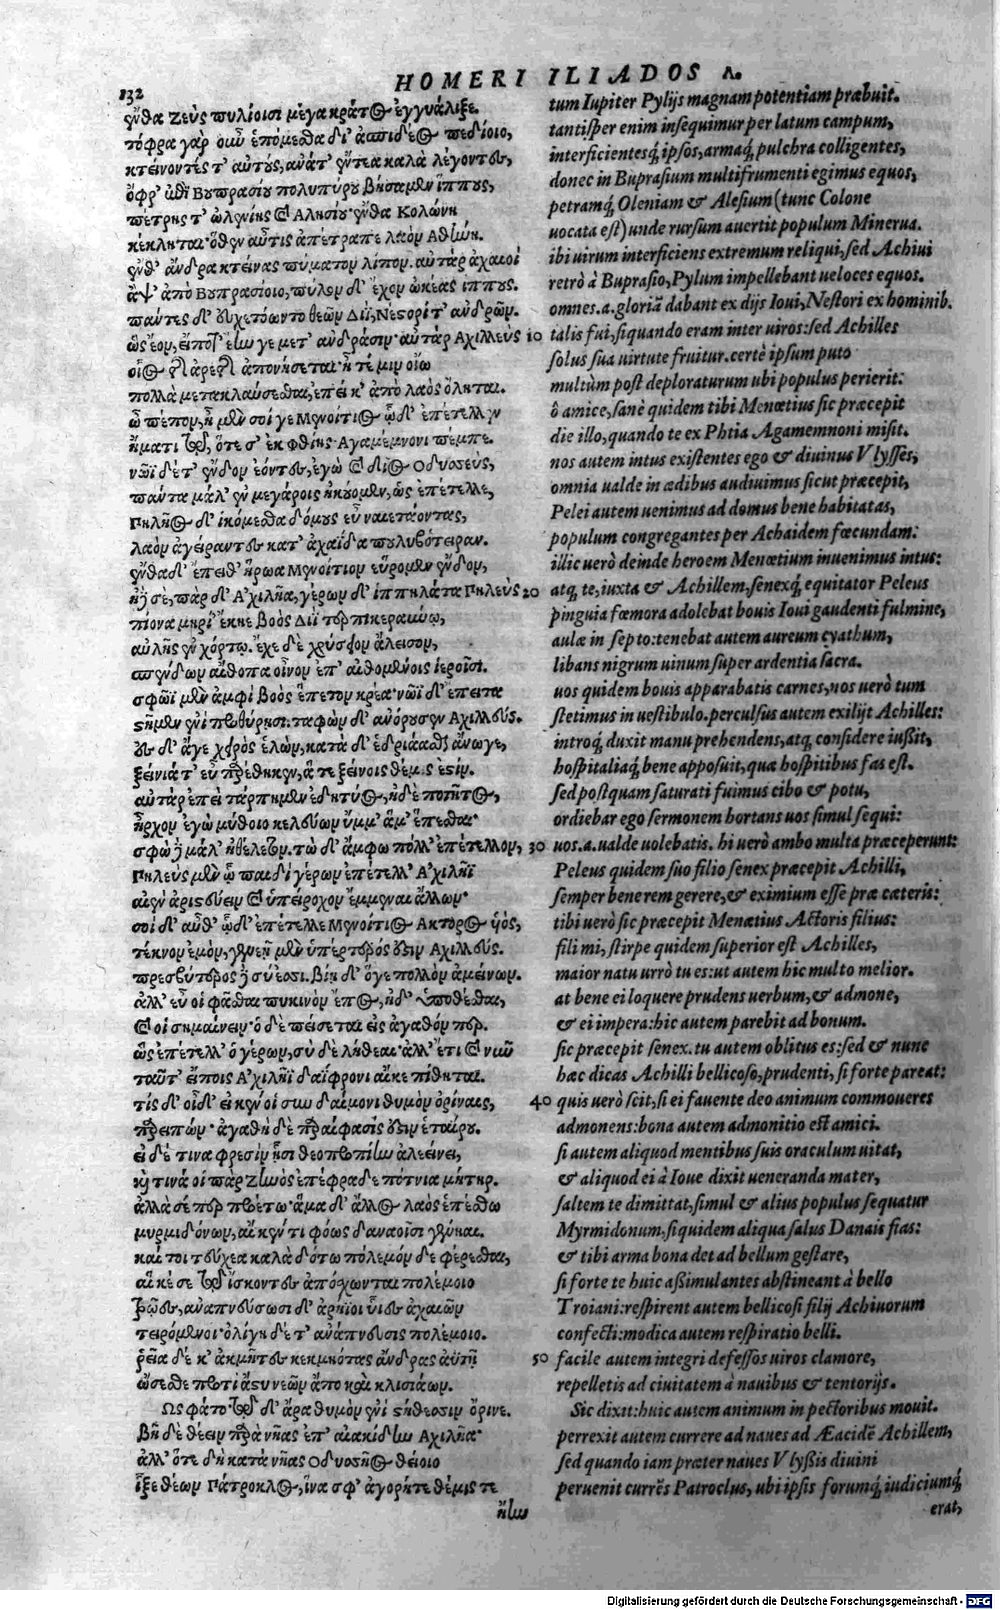 132
HOMERI ILIADOS Λ.
ἔνθα Ζεὺς πυλίοισι μέγα κράτος ἐγγυάλιξε.
τόφρα γὰρ οὖν ἑπόμεσθα δι' ἀσπιδέος πεδίοιο,
κτείνοντές τ' αὐτούς, ἀνά τ' ἔντεα καλὰ λέγοντες,
ὄφρ' ἐπὶ Βουπρασίου πολυπύρου βήσαμεν ἵππους,
πέτρης τ' ὠλενίης καὶ Αλησίου· ἔνθα Κολώνη
κέκληται· ὅθεν αὖτις ἀπέτραπε λαὸν Αθήνη.
ἔνθ' ἄνδρα κτείνας πύματον λίπον. αὐτὰρ ἀχαιοὶ
ἂψ ἀπὸ Βουπρασίοιο, πύλον δ' ἔχον ὠκέας ἵππους.
πάντες δ' εὐχετόωντο θεῶν Διῒ, Νέστορί τ' ἀνδρῶν.
ὣς ἔον, εἴποτ' ἔην γε μετ' ἀνδράσιν· αὐτὰρ Αχιλλεὺς 10
οἶος τῆς ἀρετῆς ἀπονήσεται· ἦ τέ μιν οἴω
πολλὰ μετακλαύσεσθαι, ἐπεί κ' ἀπὸ λαὸς ὄληται.
ὦ πέπον, ἦ μὲν σοί γε Μενοίτιος ὧδ' ἐπέτελλεν
ἤματι τῷ, ὅτε σ' ἐκ Φθίης Αγαμέμνονι πέμπε.
νῶϊ δέ τ' ἔνδον ἐόντες, ἐγὼ καὶ δῖος Οδυσσεὺς,
πάντα μάλ' ἐν μεγάροις ἠκούομεν, ὡς ἐπέτελλε,
Πηλῆος δ' ἱκόμεσθα δόμους εὖ ναιετάοντας,
λαὸν ἀγείροντες κατ' ἀχαΐδα πουλυβότειραν.
ἔνθα δ' ἔπειθ' ἥρωα Μενοίτιον εὕρομεν ἔνδον,
ἠδὲ σε, πὰρ δ' Αχιλῆα, γέρων δ' ἱππηλάτα Πηλεὺς 20
πίονα μηρί' ἔκηε βοὸς Διῒ τερπικεραύνῳ,
αὐλῆς ἐν χόρτῳ. ἔχε δὲ χρύσειον ἄλεισον,
σπένδων αἴθοπα οἶνον ἐπ' αἰθομένοις ἱεροῖσι.
σφῶϊ μὲν ἀμφὶ βοὸς ἕπετον κρέα· νῶϊ δ' ἔπειτα
στῆμεν ἐνὶ προθύροισι. ταφὼν δ' ἀνόρουσεν Αχιλλεύς.
ἐς δ' ἄγε χειρὸς ἑλὼν, κατὰ δ' ἑδριάασθαι ἄνωγε,
ξείνιά τ' εὖ παρέθηκεν, ἅ τε ξείνοις θέμις ἐστίν.
αὐτὰρ ἐπεὶ τάρπημεν ἐδητύος, ἠδὲ ποτῆτος,
ἦρχον ἐγὼ μύθοιο κελεύων ὔμμ' ἅμ' ἕπεσθαι·
σφὼ δὲ μάλ' ἠθέλετον. τὼ δ' ἄμφω πόλλ' ἐπέτελλον, 30
Πηλεὺς μὲν ᾧ παιδὶ γέρων ἐπέτελλ' Αχιλῆϊ
αἰὲν ἀριστεύειν καὶ ὑπείροχον ἔμμεναι ἄλλων·
σοὶ δ' αὖθ' ὧδ' ἐπέτελλε Μενοίτιος Ακτορος υἱός,
τέκνον ἐμὸν, γενεῇ μὲν ὑπέρτερός ἐστιν Αχιλλεύς.
πρεσβύτερος δὲ σύ ἐσσι. βίῃ δ' ὅγε πολλὸν ἀμείνων.
ἀλλ' εὖ οἱ φάσθαι πυκινὸν ἔπος, ἠδ' ὑποθέσθαι,
καὶ οἱ σημαίνειν· ὁ δὲ πείσεται εἰς ἀγαθόν περ.
ὣς ἐπέτελλ' ὁ γέρων, σὺ δὲ λήθεαι· ἀλλ' ἔτι καὶ νῦν
ταῦτ' εἴποις Αχιλῆϊ δαΐφρονι αἴκε πίθηται.
τίς δ' οἶδ' εἴ κέν οἱ σὺν δαίμονι θυμὸν ὀρίναις,
παρειπών· ἀγαθὴ δὲ παραίφασίς ἐστιν ἑταίρου.
εἰ δέ τινα φρεσὶν ᾗσι θεοπροπίην ἀλεείνει,
καί τινά οἱ πὰρ Ζηνὸς ἐπέφραδε πότνια μήτηρ.
ἀλλὰ σέ περ προέτω· ἅμα δ' ἄλλος λαὸς ἑπέσθω
μυρμιδόνων, αἴ κέν τι φόως δαναοῖσι γένηαι.
καί τοι τεύχεα καλὰ δότω πόλεμον δὲ φέρεσθαι,
αἴ κέ σε τῷ ἴσκοντες ἀπόσχωνται πολέμοιο
Τρῶες, ἀναπνεύσωσι δ' ἀρήϊοι υἷες ἀχαιῶν
τειρόμενοι· ὀλίγη δέ τ' ἀνάπνευσις πολέμοιο.
ῥεῖα δέ κ' ἀκμῆτες κεκμηότας ἄνδρας ἀϋτῇ
ὤσεσθε προτὶ ἄστυ νεῶν ἄπο καὶ κλισιάων.
Ως φάτο· τῷ δ' ἄρα θυμὸν ἐνὶ στήθεσσιν ὄρινε.
Βῆ δὲ θέειν παρὰ νῆας ἐπ' αἰακίδην Αχιλῆα·
ἀλλ' ὅτε δὴ κατὰ νῆας Οδυσσῆος θείοιο
ἷξε θέων Πάτροκλος, ἵνα σφ' ἀγορή τε θέμις τε
ἤην
tum Iupiter Pylijs magnam potentiam præbuit.
tantisper enim insequimur per latum campum,
interficientesq́; ipsos, armaq́; pulchra colligentes,
donec in Buprasium multifrumenti egimus equos,
petramq́; Oleniam & Alesium (tunc Colone
uocata est) unde rursum auertit populum Minerua.
ibi uirum interficiens extremum reliqui, sed Achiui
retrò à Buprasio, Pylum impellebant ueloces equos.
omnes .a. gloriã dabant ex dijs Ioui, Nestori ex hominib.
talis fui, siquando eram inter uiros: sed Achilles
solus sua uirtute fruitur. certè ipsum puto
multùm post deploraturum ubi populus perierit:
ô amice, sanè quidem tibi Menœtius sic præcepit
die illo, quando te ex Phtia Agamemnoni misit.
nos autem intus existentes ego & diuinus Vlysses,
omnia ualde in ædibus audiuimus sicut præcepit,
Pelei autem uenimus ad domus bene habitatas,
populum congregantes per Achaidem fœcundam:
illic uerò deinde heroem Menœtium inuenimus intus:
atq; te, iuxta & Achillem, senexq́; equitator Peleus
pinguia fœmora adolebat bouis Ioui gaudenti fulmine,
aulæ in septo: tenebat autem aureum cyathum,
libans nigrum uinum super ardentia sacra.
uos quidem bouis apparabatis carnes, nos uerò tum
stetimus in uestibulo. perculsus autem exilijt Achilles:
introq́; duxit manu prehendens, atq; considere iussit,
hospitaliaq́; bene apposuit, quæ hospitibus fas est.
sed postquam saturati fuimus cibo & potu,
ordiebar ego sermonem hortans uos simul sequi:
uos .a. ualde uolebatis. hi uerò ambo multa præceperunt:
Peleus quidem suo filio senex præcepit Achilli,
semper benerem gerere, & eximium esse præ cæteris:
tibi uerò sic præcepit Menœtius Actoris filius:
fili mi, stirpe quidem superior est Achilles,
maior natu urrò tu es: ut autem hic multo melior.
at bene ei loquere prudens uerbum, & admone,
& ei impera: hic autem parebit ad bonum.
sic præcepit senex. tu autem oblitus es: sed & nunc
hæc dicas Achilli bellicoso, prudenti, si forte pareat:
40 quis uerò scit, si ei fauente deo animum commoueres
admonens: bona autem admonitio est amici.
si autem aliquod mentibus suis oraculum uitat,
& aliquod ei à Ioue dixit ueneranda mater,
saltem te dimittat, simul & alius populus sequatur
Myrmidonum, siquidem aliqua salus Danais fias:
& tibi arma bona det ad bellum gestare,
si forte te huic aßimulantes abstineant à bello
Troiani: respirent autem bellicosi filij Achiuorum
confecti: modica autem respiratio belli.
50 facile autem integri defessos uiros clamore,
repelletis ad ciuitatem à nauibus & tentorijs.
Sic dixit: huic autem animum in pectoribus mouit.
perrexit autem currere ad naues ad Æacidẽ Achillem,
sed quando iam præter naues Vlyßis diuini
peruenit currẽs Patroclus, ubi ipsis forumq́; iudiciumq́;
erat,
Digitalisierung gefördert durch die Deutsche Forschungsgemeinschaft - DFG